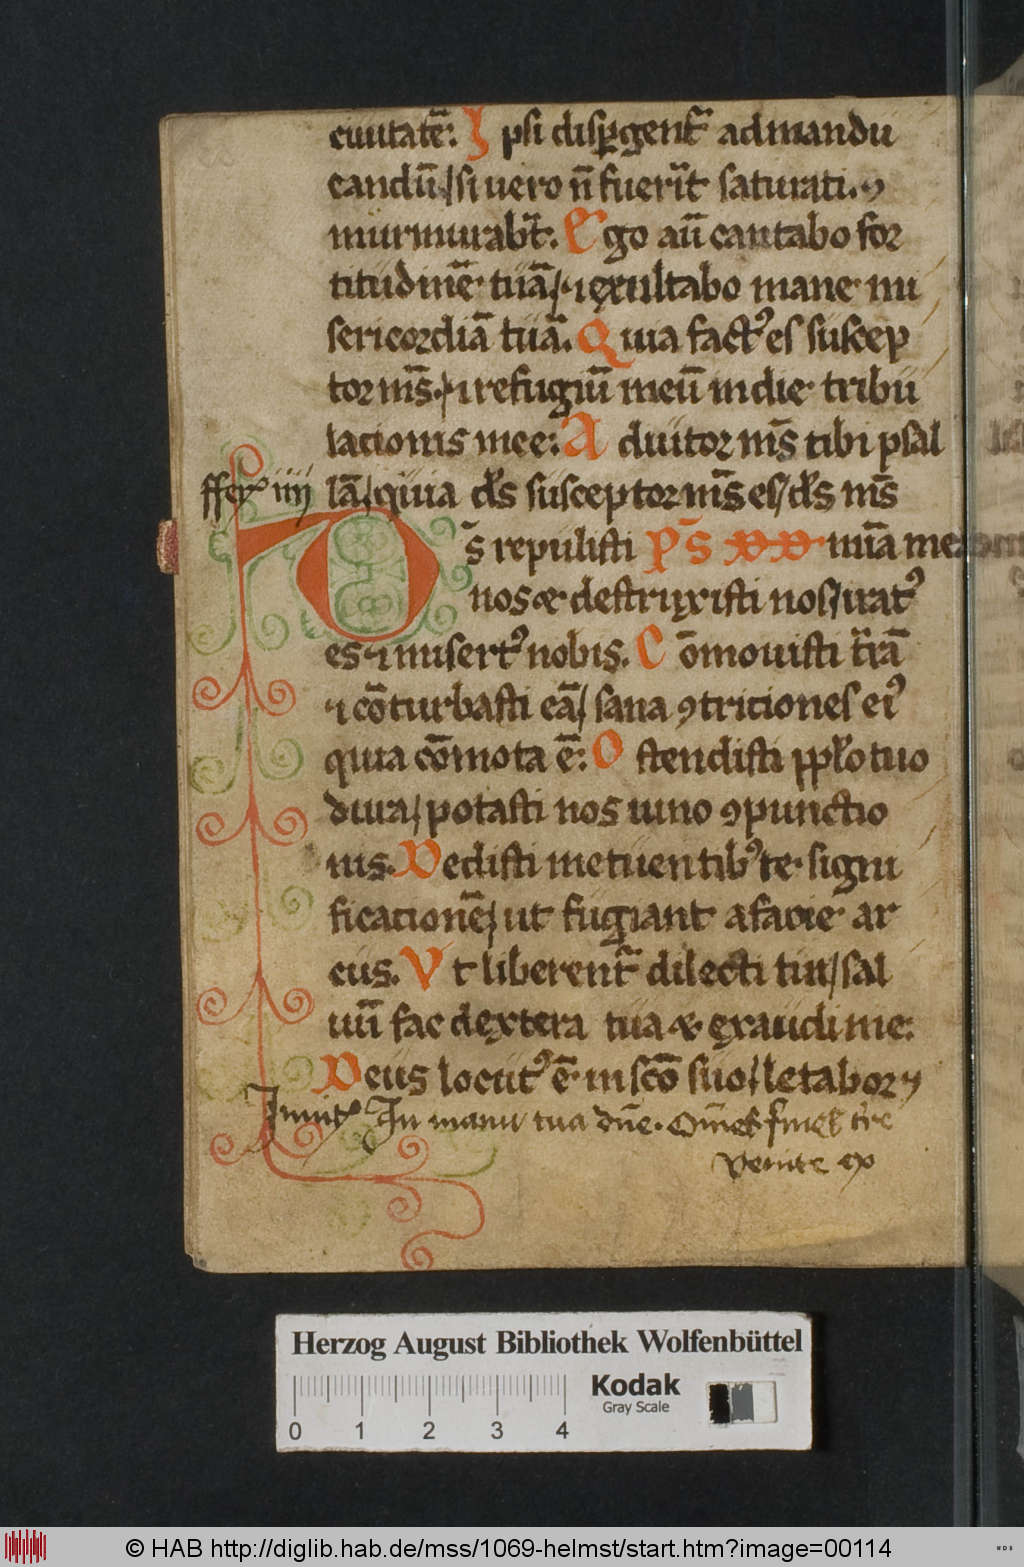 ciuitatē. Ipsi disp̄gent᷑ admandu
candū / si uero n̄ fuerīt saturati. ⁊
murmurabt̄. Ego aū cantabo for
titudinē tuā / ⁊ exultabo mane mi
sericordiā tuā. Quia factꝰ es suscep
tor ms̄. / ⁊ refugiū meū in die tribu
lacionis mee: Adiutor ms̄ tibi psal
lā / quia ds̄ susceptor ms̄ es / ds̄ ms̄
fferꝰ iiij
Ds̄ repulisti p̄s mīa mea
nos & destruxisti nos / iratꝰ
es ⁊ misertꝰ nobis. Cōmouisti tr̄rā
⁊ cōturbasti eā / sana ꝯtriciones eiꝰ
quia cōmota ē: Ostendisti pplo tuo
dura / potasti nos uino ꝯpunctio
nis. Dedisti metuentibꝰ te signi
ficacionē / ut fugiant afacie ar
cus. Ut liberent᷑ dilecti tui / sal
uū fac dextera tua & exaudi me:
Deus locutꝰ ē in scō suo / letabor ⁊
Inuitꝰ In manu tua dn̄e. Om̄es fines tr̄re
Venite ex
Herzog August Bibliothek Wolfenbüttel
Kodak
Gray Scale
0 1 2 3 4
© HAB http://diglib.hab.de/mss/1069-helmst/start.htm?image=00114